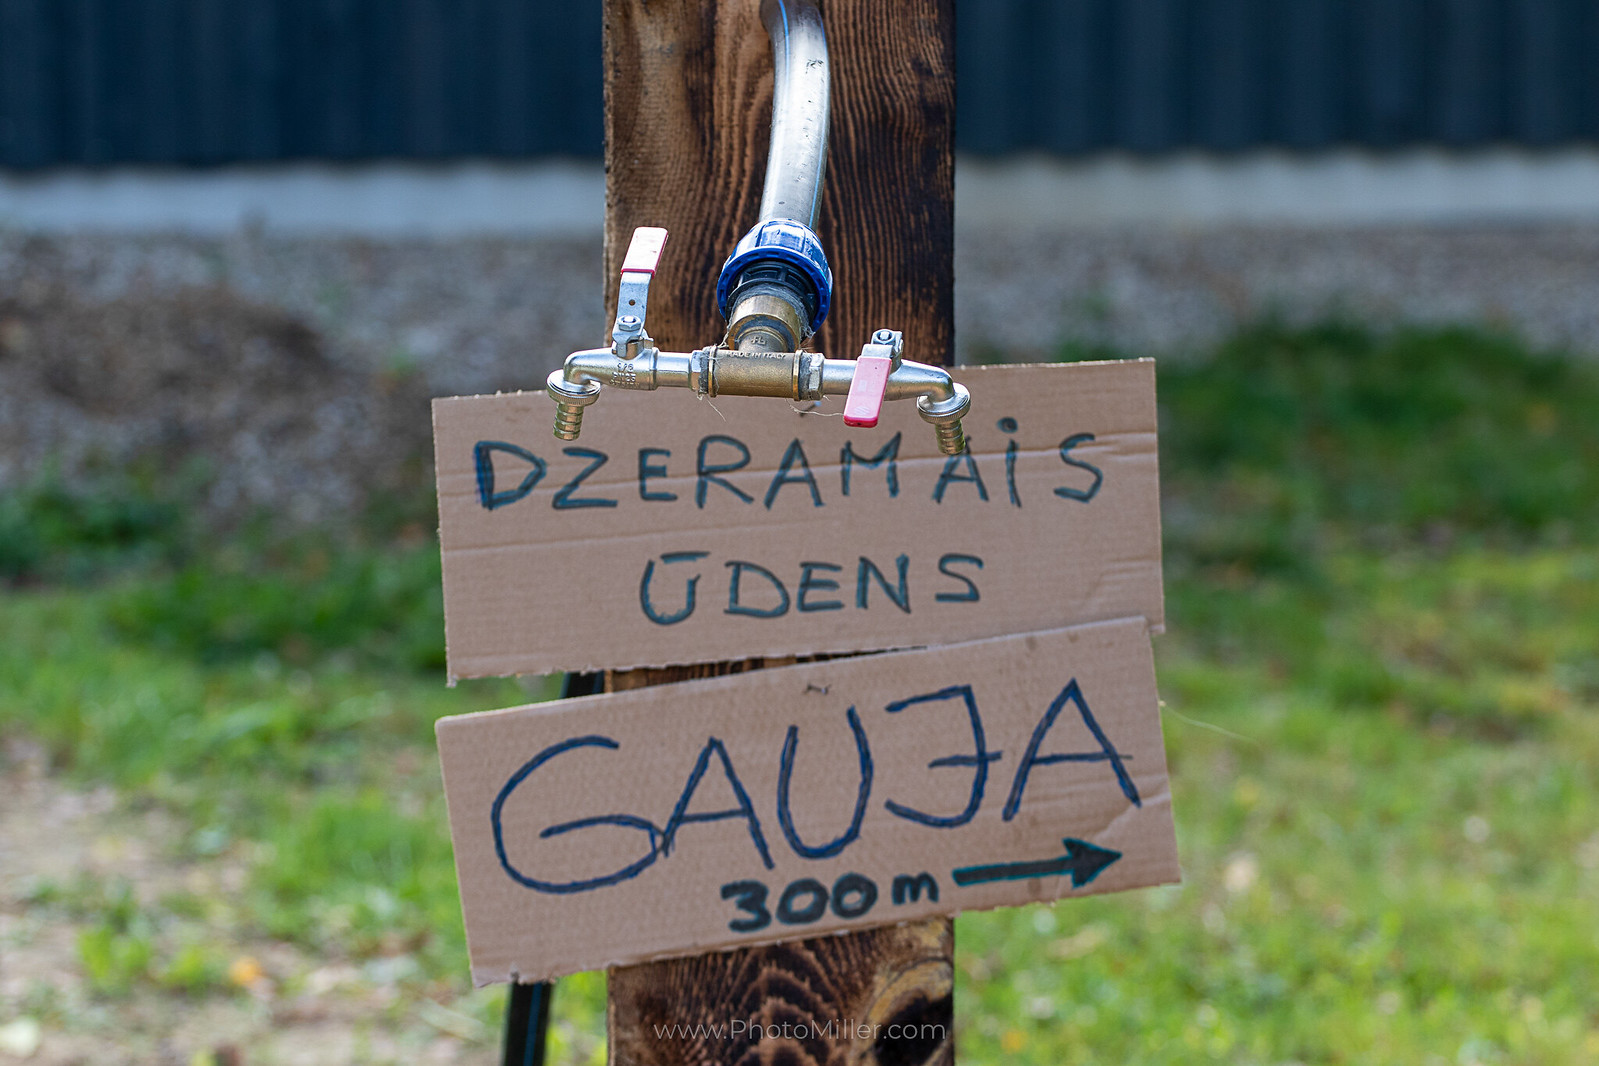 MADE IN ITALY
DZERAMAIS
ŪDENS
GAUJA
300m →
www.PhotoMiller.com